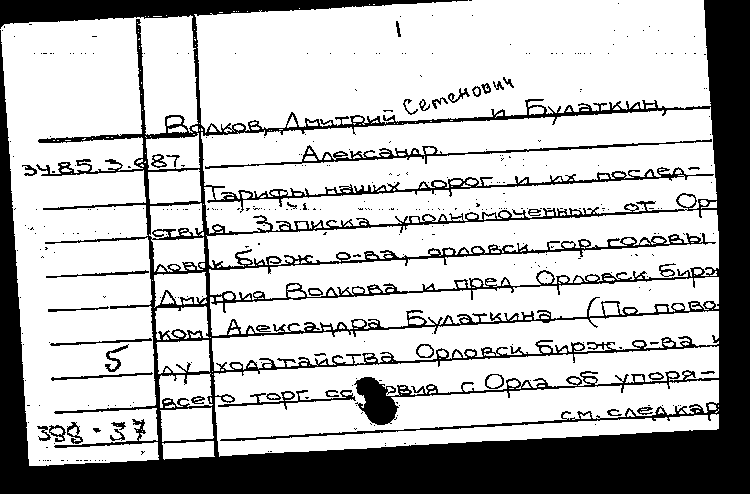 1
Волков, Дмитрий Семенович и Булаткин,
34.85.3.687. Александр.
Тарифы наших дорог и их послед-
ствия. Записка уполномоченных от Ор-
ловск. бирж. о-ва, орловск. гор. головы
Дмитрия Волкова и пред. Орловск. бирж
ком. Александра Булаткина. (По пово
5 ду ходатайства Орловск. бирж. о-ва и
всего торг. сословия г. Орла об упоря-
388-37 см. след кар